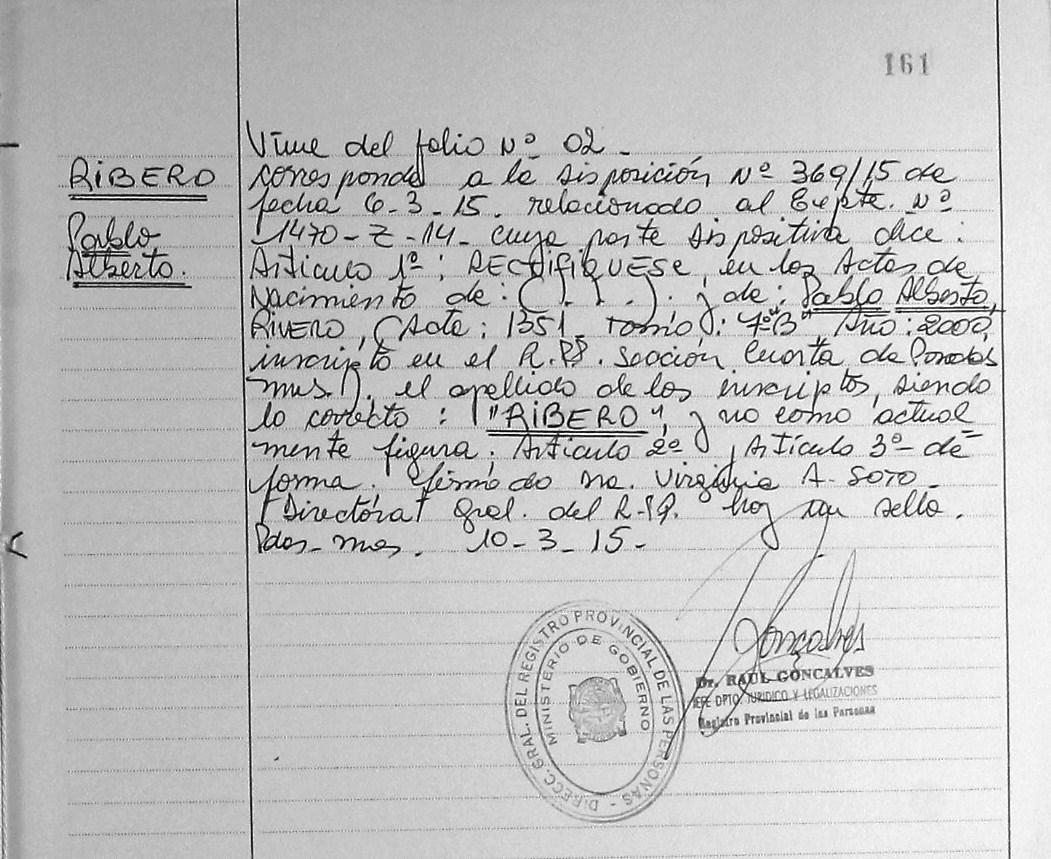 161
Viene del folio Nº 02 -
RIBERO
Pablo
Alberto.
corresponde a la disposición Nº 369/15 de
fecha 6-3-15. relacionado al Expte. Nº
1470-Z-14- cuya parte dispositiva dice:
Artículo 1º: RECTIFIQUESE, en las Actas de
Nacimiento de: ( ). ( . ). y de: Pablo Alberto,
RIVERO, (Acta: 1351, Tomo: 7º"B" Año: 2000,
inscripto en el R.PP. Sección Cuarta de Posadas
mnes.), el apellido de los inscriptos, siendo
lo correcto: "RIBERO", y no como actual
mente figura. Artículo 2º, Artículo 3º- de
forma. firmado Virginia A. SOTO -
Directora Gral. del R.P. hay un sello.
Pdas-mnes. 10-3-15-
Gonçalves
Dr. RAUL GONCALVES
JEFE DPTO. JURIDICO Y LEGALIZACIONES
Registro Provincial de las Personas
DIRECC. GRAL. DEL REGISTRO PROVINCIAL DE LAS PERSONAS -
MINISTERIO DE GOBIERNO